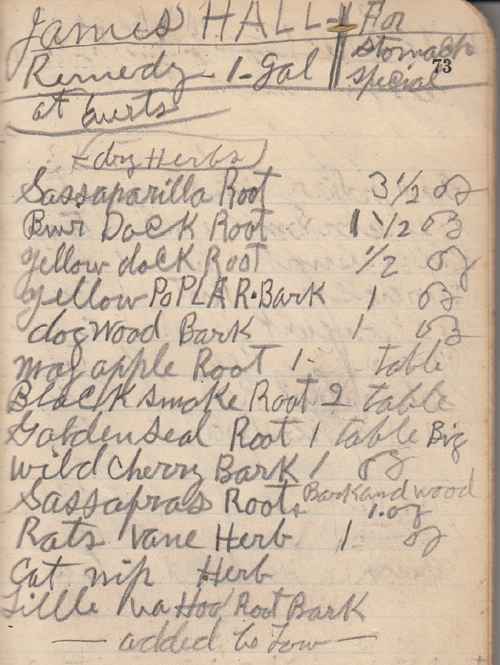 James HALL- For
Remedy - 1-Gal Stomach
special 73
at Everts
dry Herbs
Sassaparilla Root 3 1/2 oz
Burr Dock Root 1 1/2 oz
yellow dock Root 1/2 oz
yellow PoPLAR. Bark 1 oz
dogwood Bark 1 oz
may apple Root 1- table
Black smoke Root 2 table
Goldenseal Root 1 table Big
Wild Cherry Bark 1 oz
Sassafras Roots Bark and wood
1. oz
Rats vane Herb 1 oz
Cat nip Herb
Little wa Hoo Root Bark
- added to